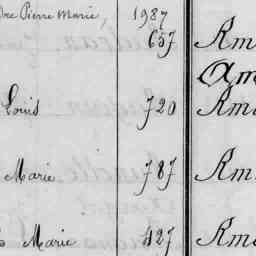 Pierre Marie, 1987
657 Rm
Am
Louis 720 Rm
Marie 787 Rm
Marie 427 Rm